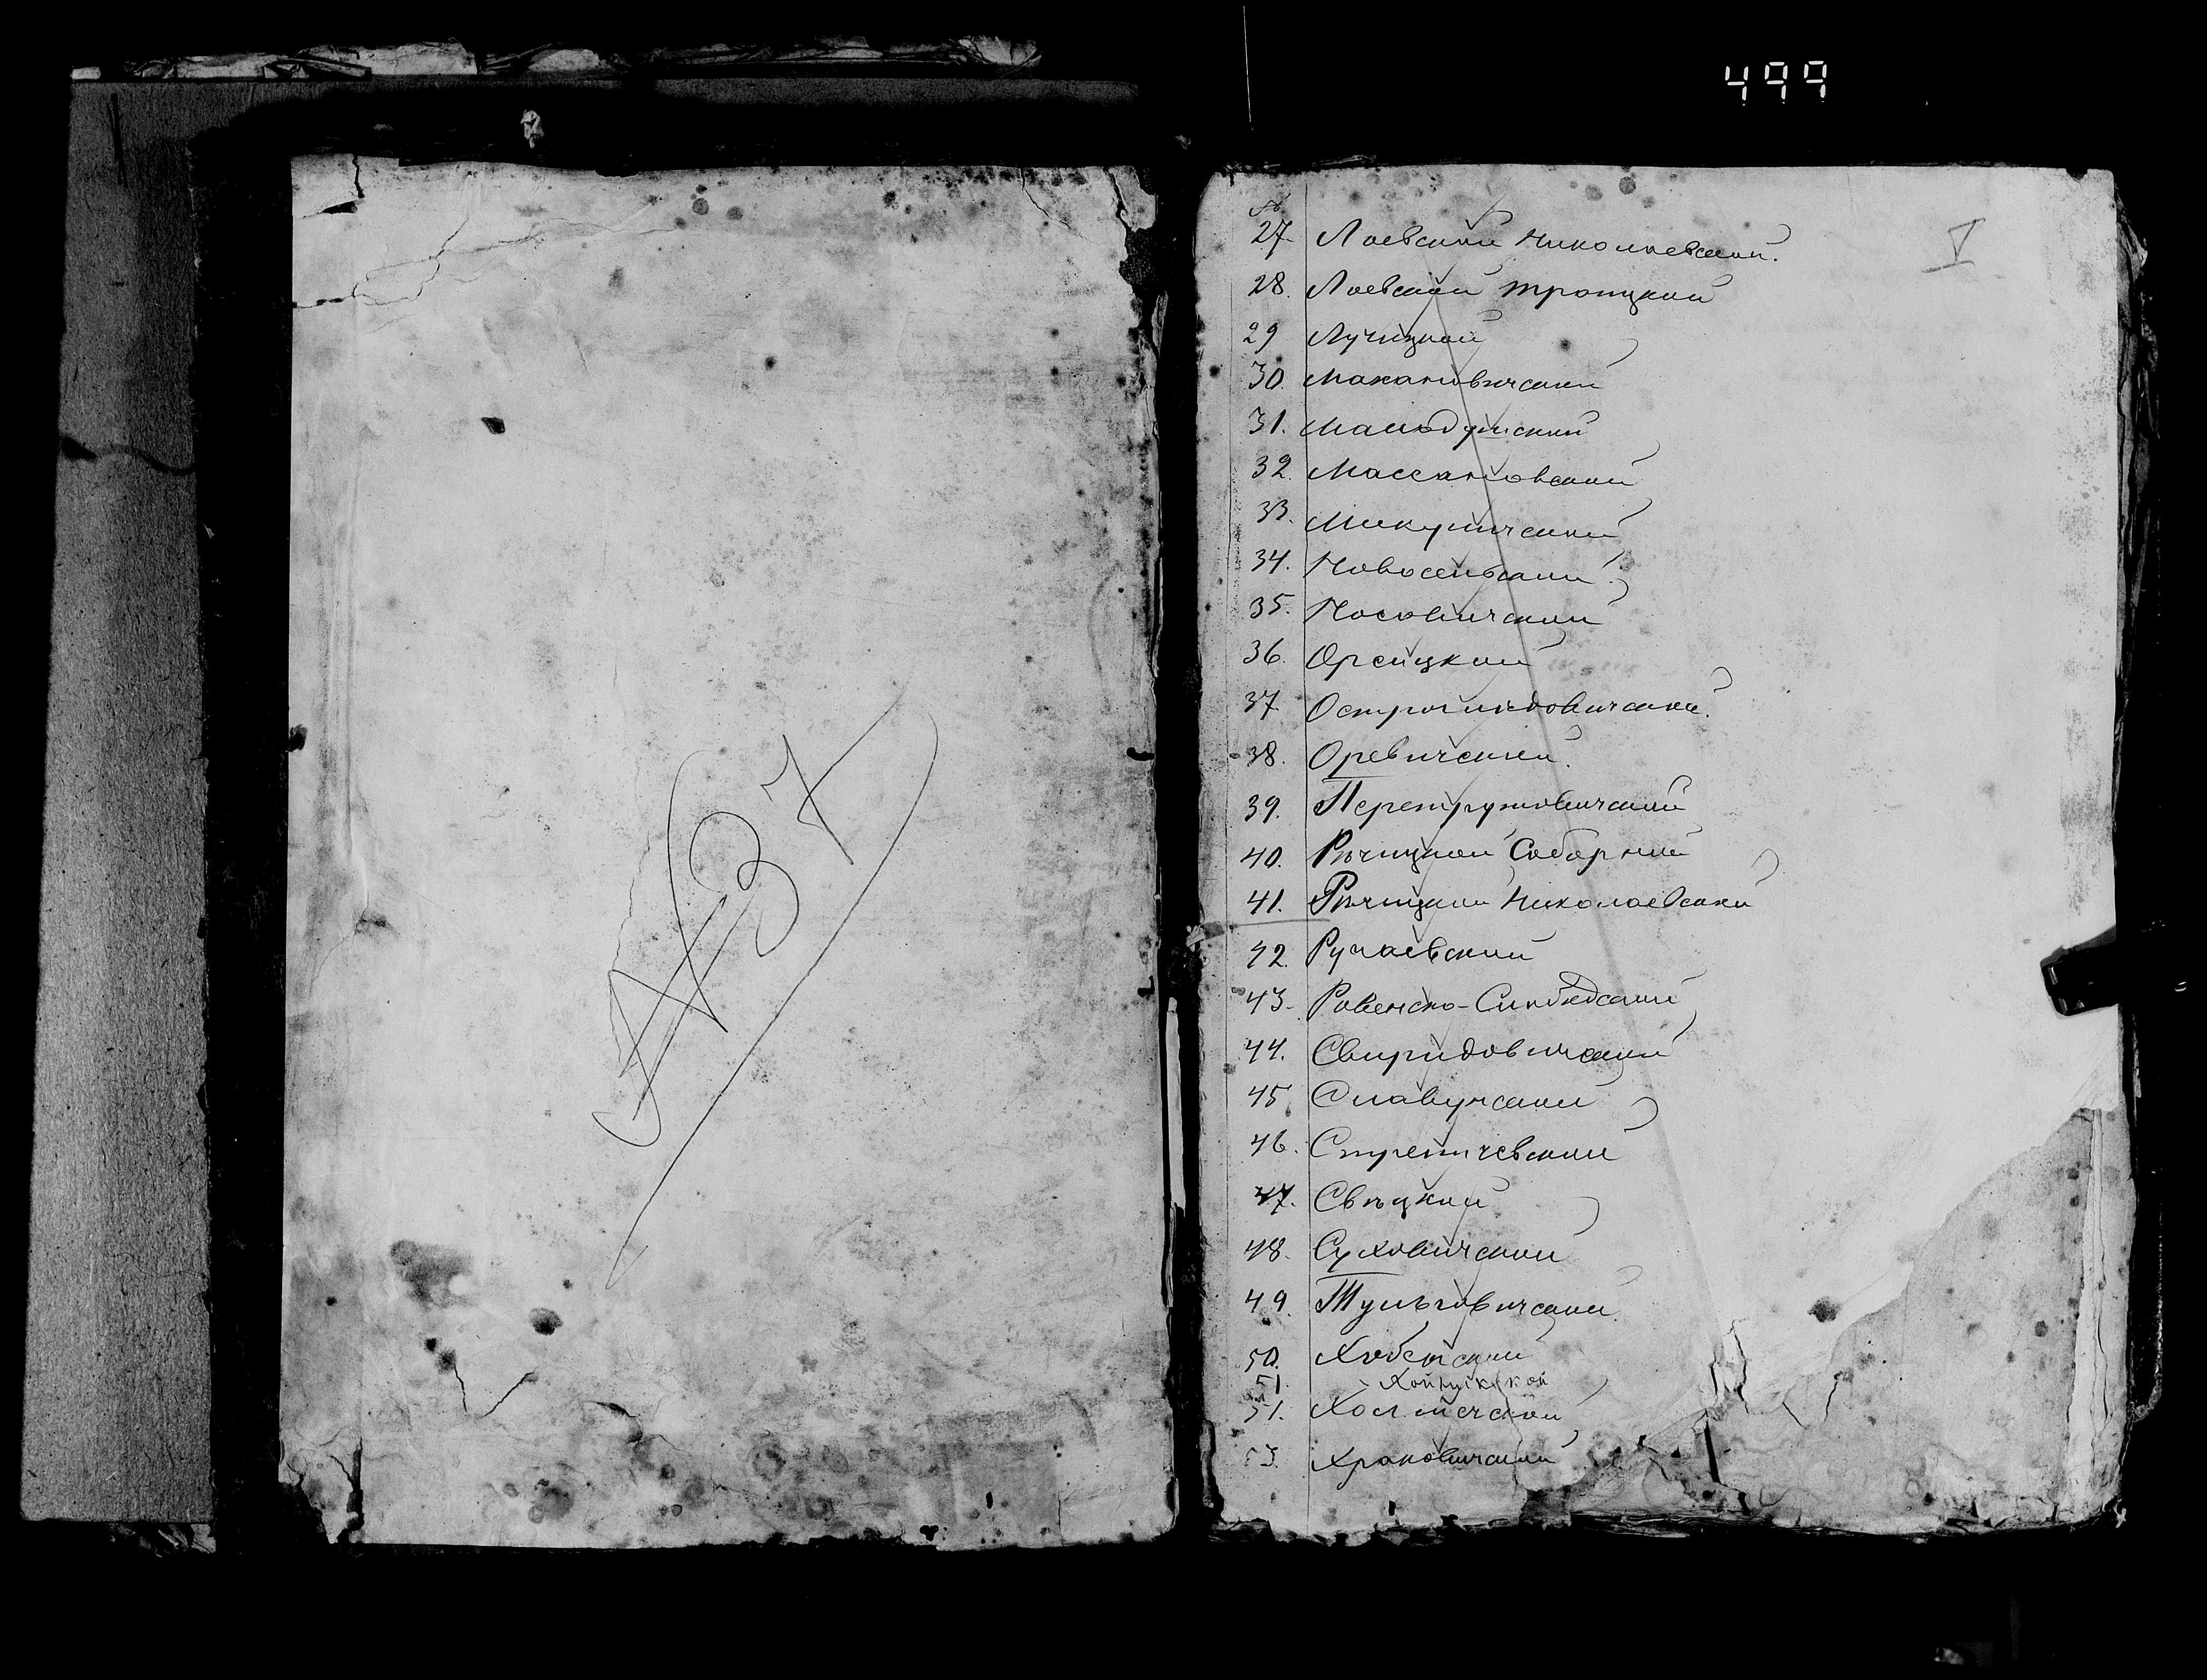 499
№ 37
V
№
27. Лоевской Николаевской.
28. Лоевской Троицкой
29 Лучицкой
30. Макановичской
31. Малодушской
32. Массановской
33. Микуличской
34. Новосельской
35. Носовичской
36. Орсицкой
37 Остроглядовичской.
38. Оревичской.
39. Перетрутовичской
40. Рѣчицкой Соборной
41. Рѣчицкой Николаевской
42. Ручаевской
43. Ровенско-Слободской
44. Свиридовичской
45. Славунской
46. Стреличевской
47. Свѣцкой
48. Суховичской
49. Тульговичской.
50. Хобенской
51. Хойникской
51. Холмечской
53. Храковичской